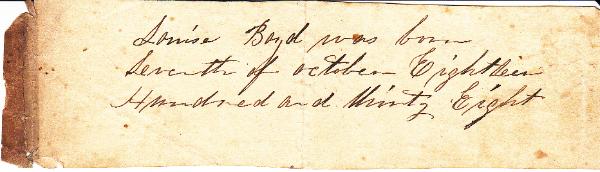 Louise Boyd was born
Seventh of october Eighteen
Hundred and thirty Eight